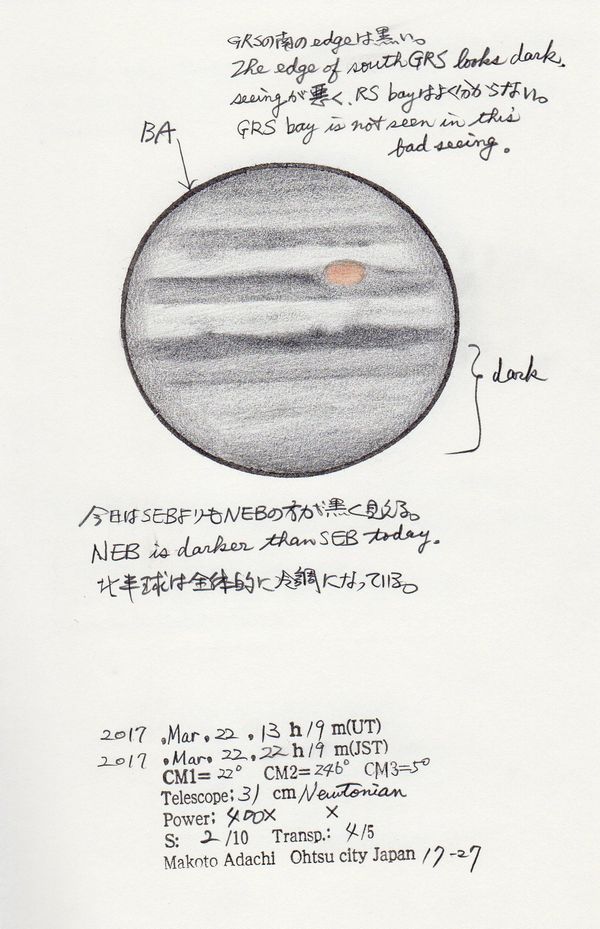 GRSの南のedgeは黒い。
The edge of south GRS looks dark.
seeingが悪く、RS bayはよく分からない。
GRS bay is not seen in this
bad seeing.
BA
dark
今日はSEBよりもNEBの方が黒く見える。
NEB is darker than SEB today.
北半球は全体的に冷調になっている。
2017 .Mar. 22 . 13 h 19 m(UT)
2017 .Mar. 22 . 22 h 19 m(JST)
CM1= 22° CM2= 246° CM3=50
Telescope; 31 cm Newtonian
Power; 400× ×
S: 2 /10 Transp.: 4/5
Makoto Adachi Ohtsu city Japan 17-27